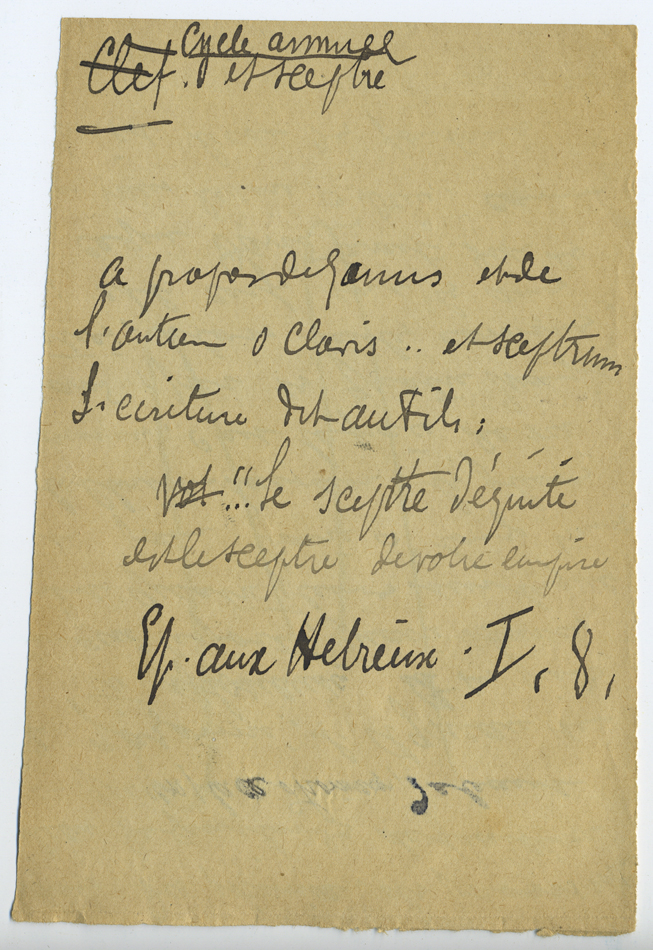 Cycle annuel
Clef. et sceptre
a propos de Janus et de
l'antien O Clavis .. et sceptrum
L'ecriture dit au Fils,
"... Le sceptre d'équité
est le sceptre de votre empire
Ep. aux Hebreux. I, 8,